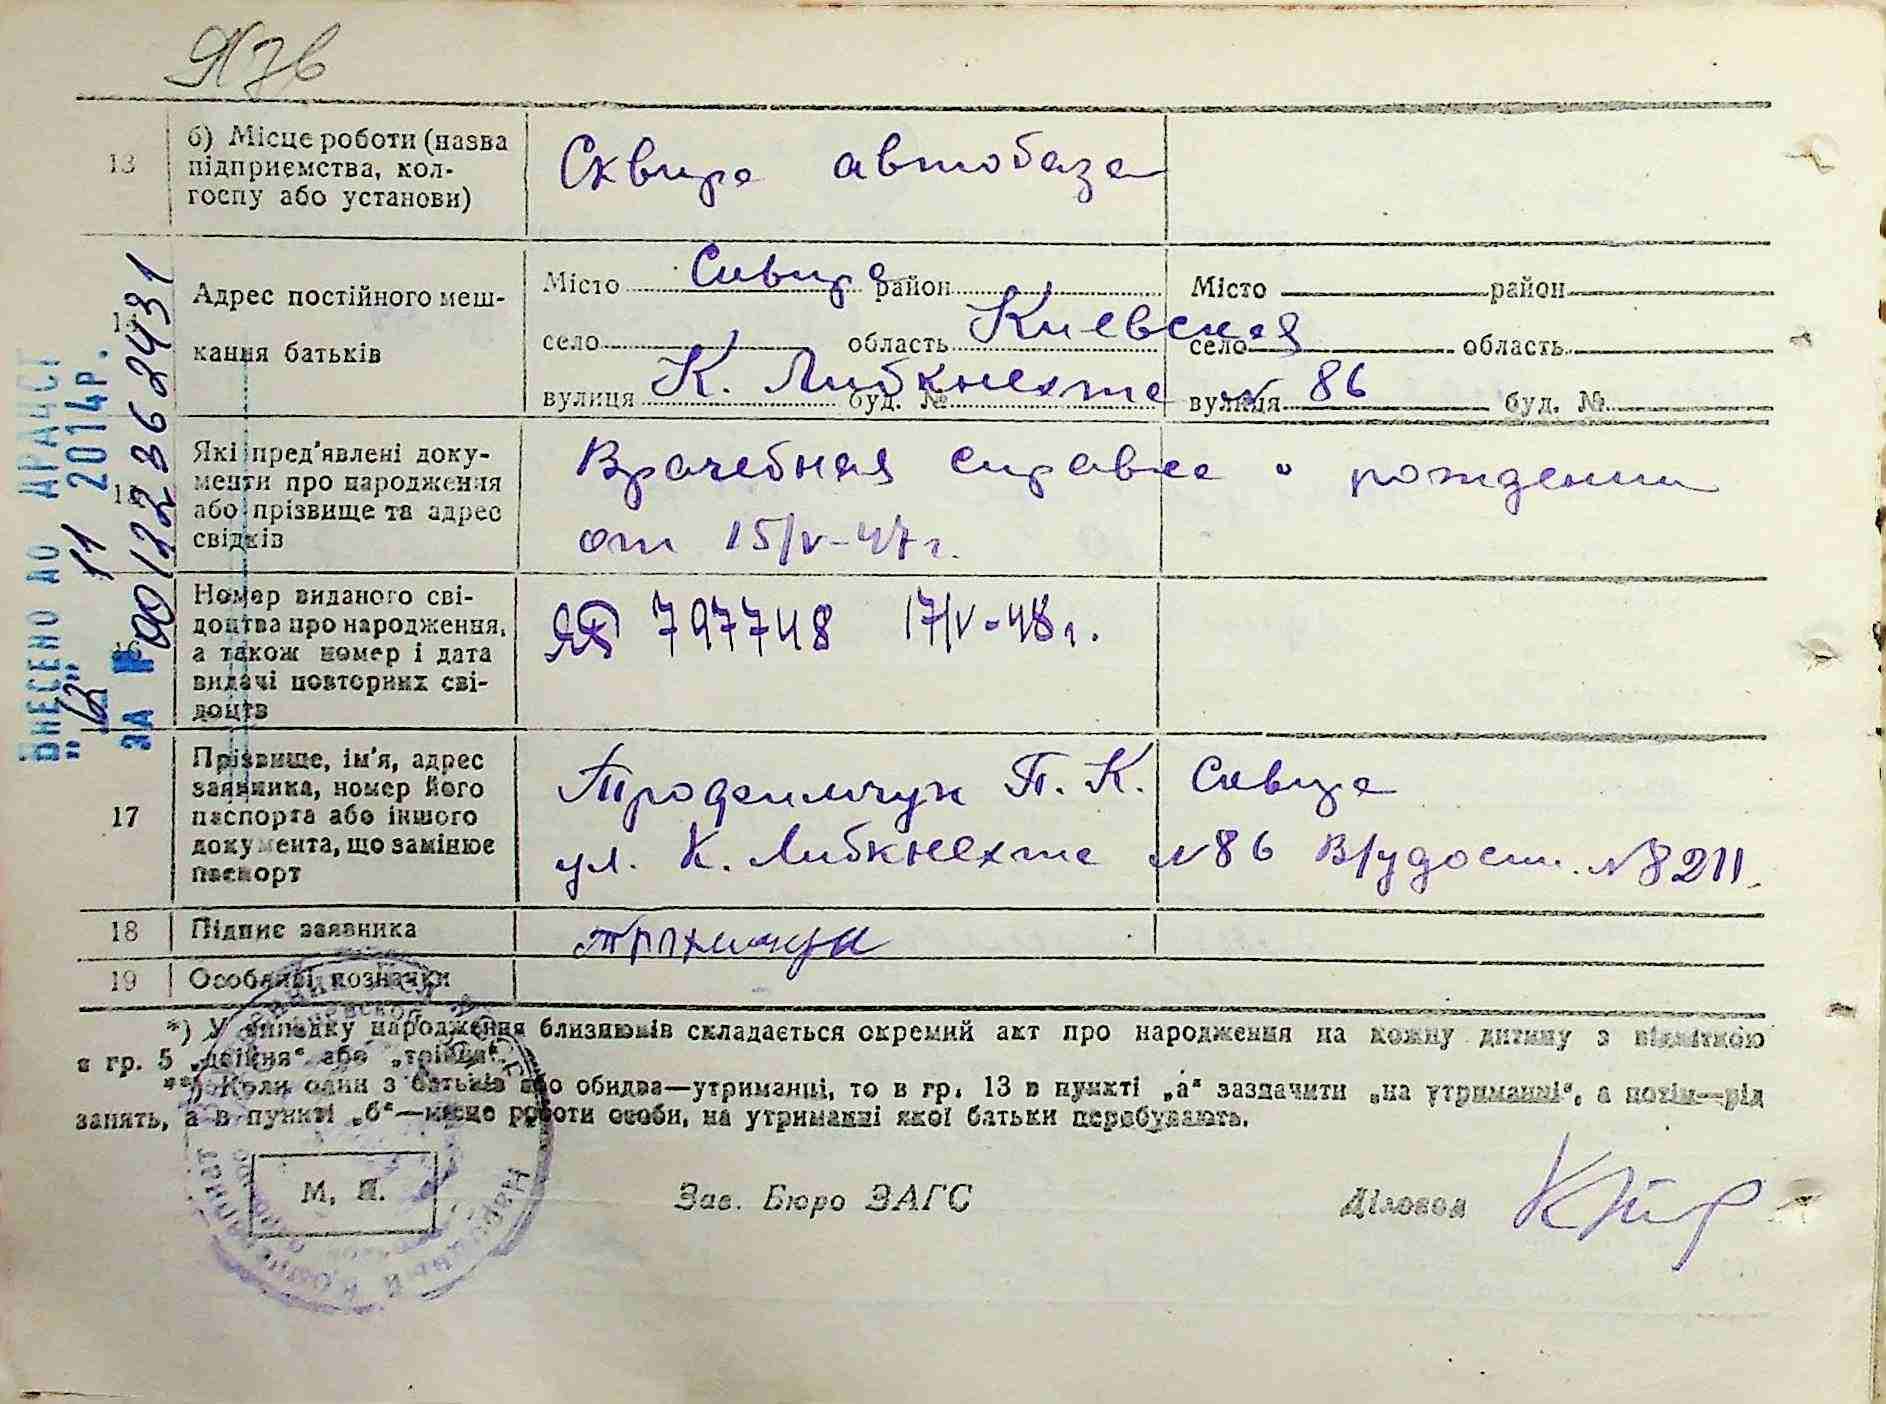 13 б) Місце роботи (назва підприємства, колгоспу або установи) Сквира автобаза
14 Адрес постійного мешкання батьків
Місто Сквира район Місто район
село область Киевская село область
вулиця К. Либкнехта буд. № вулиця № 86 буд. №
15 Які пред'явлені документи про народження або прізвище та адрес свідків
Врачебная справка о рождении
от 15/V-47 г.
16 Номер виданого свідоцтва про народження, а також номер і дата видачі повторних свідоцтв
797748 17/V-48 г.
17 Прізвище, ім'я, адрес заявника, номер його паспорта або іншого документа, що замінює паспорт
П. К. Сквира
ул. К. Либкнехта №86 В/удост. №8211.
18 Підпис заявника
19 Особливі позначки
*) У випадку народження близнюків складається окремий акт про народження на кожну дитину з відміткою
в гр. 5 „двійня“ або „трійня“.
**) Коли один з батьків або обидва—утриманці, то в гр. 13 в пункті „а“ зазначити „на утриманні“, а потім—рід
занять, а в пункті „б“—місце роботи особи, на утриманні якої батьки перебувають.
М. П.
Зав. Бюро ЗАГС
Діловод
ВНЕСЕНО ДО ДРАЦСГ
„12“ 11 2014р.
ЗА № 00122362431